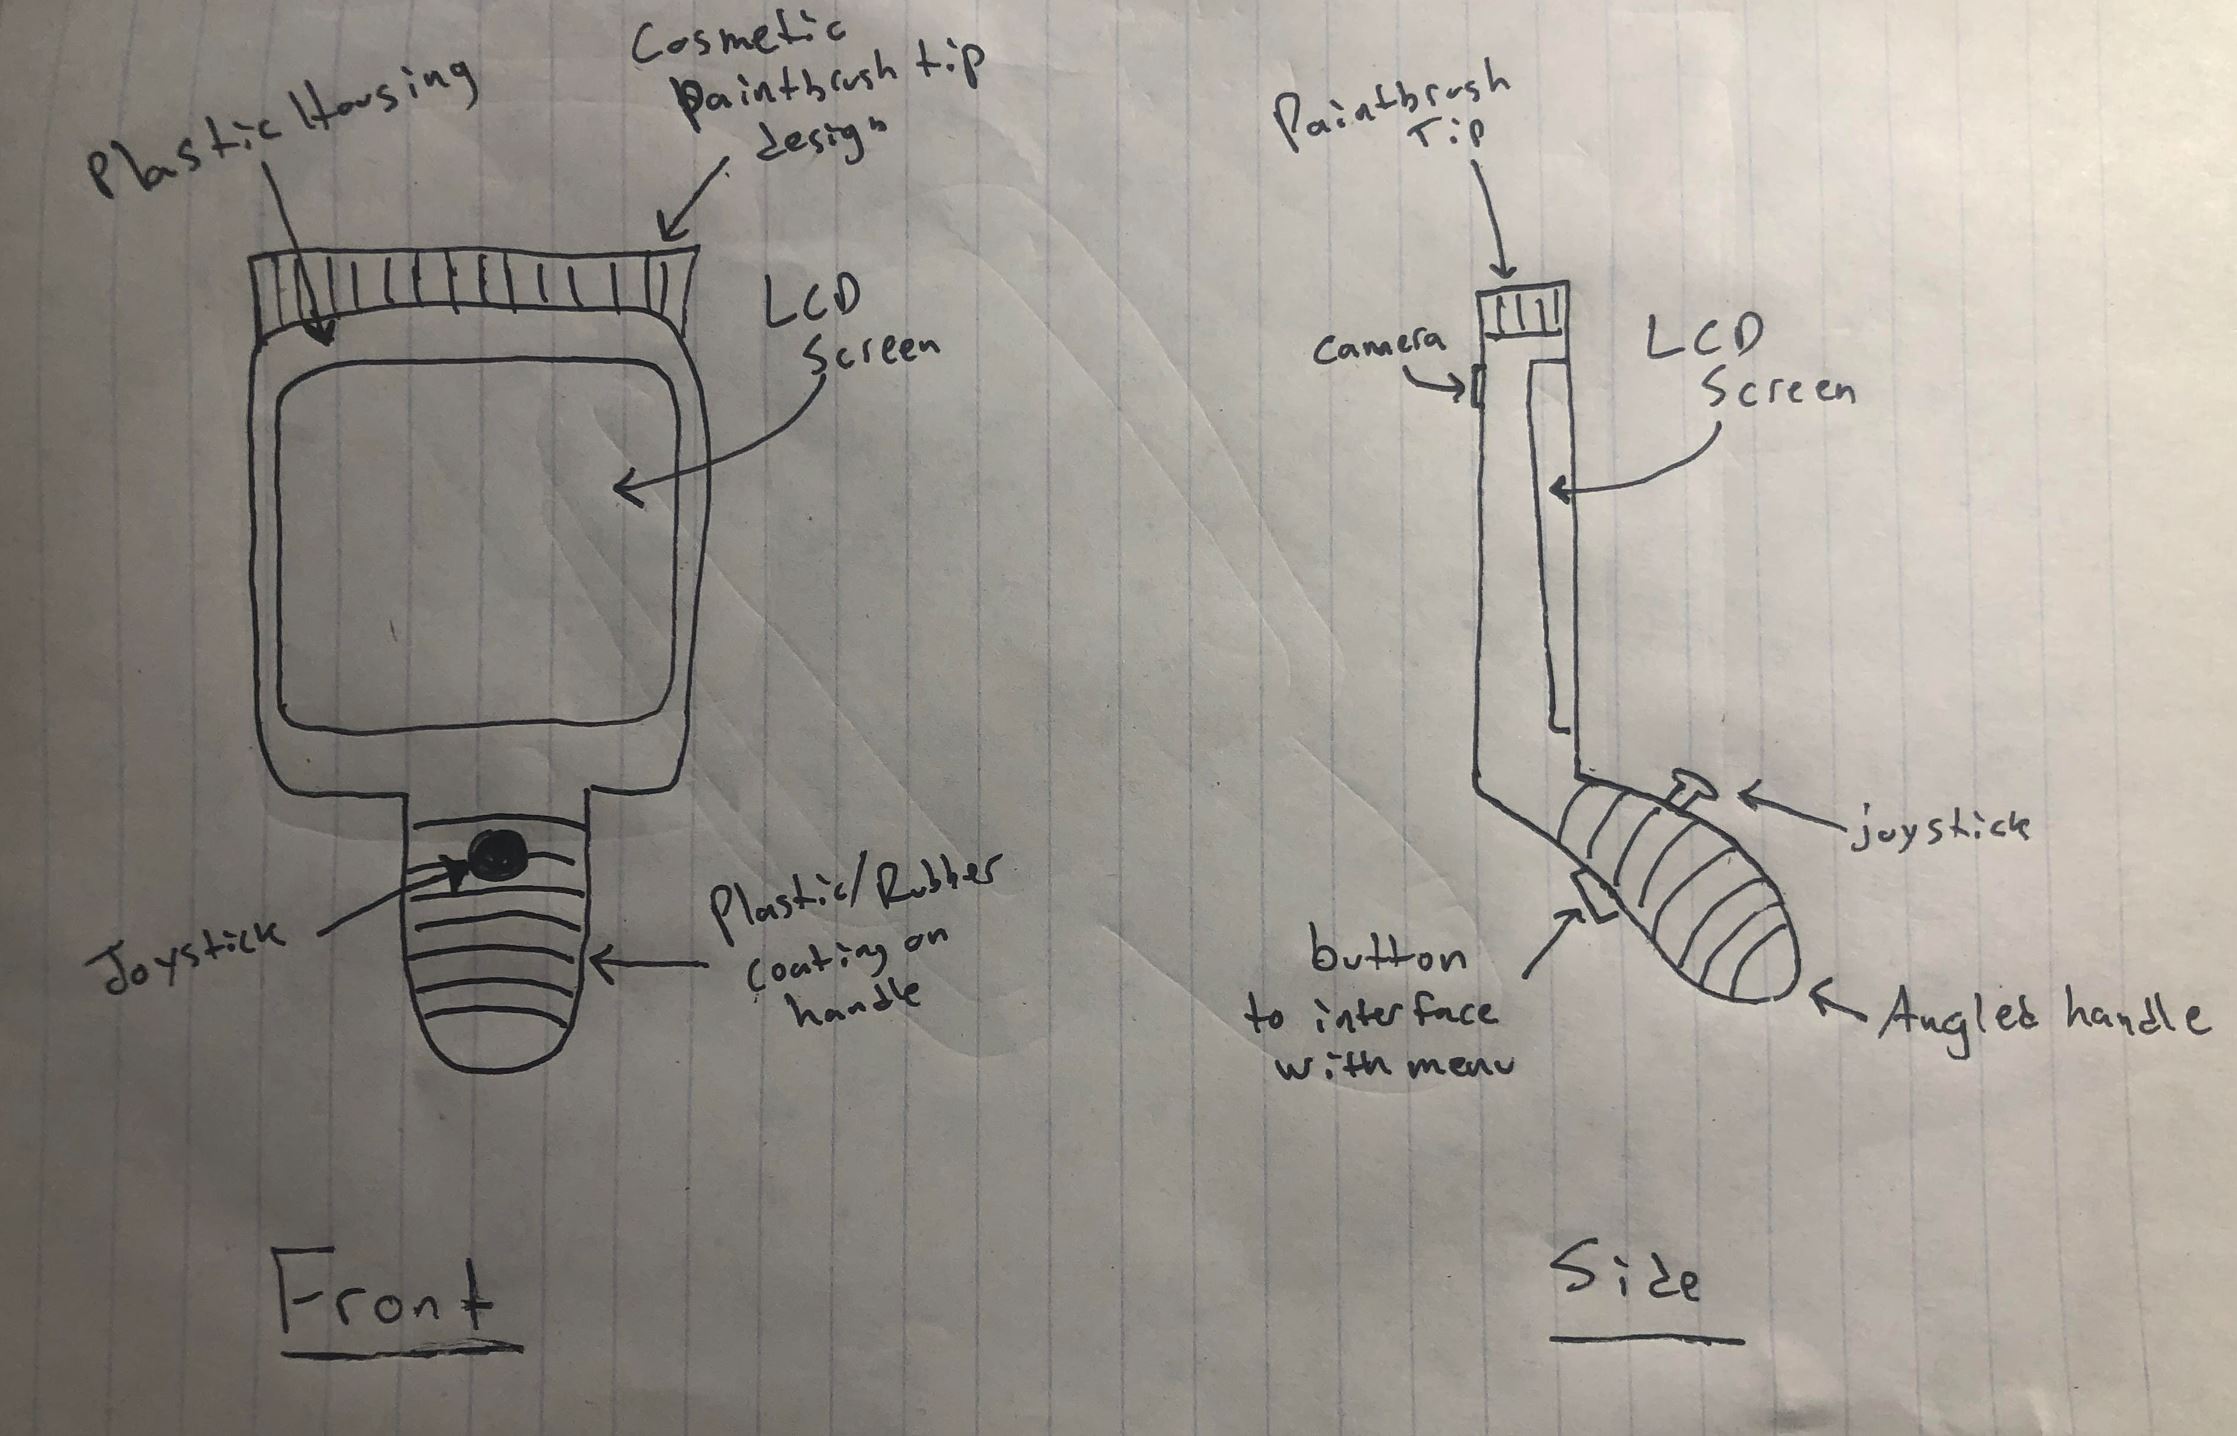 Plastic Housing
Cosmetic
Paintbrush tip
design
LCD
Screen
Joystick
Plastic/Rubber
coating on
handle
Front
Paintbrush
Tip
Camera
LCD
Screen
joystick
button
to interface
with menu
Angled handle
Side